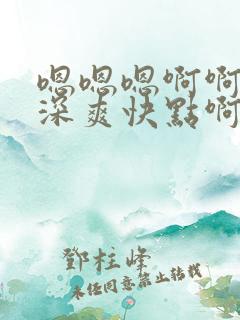 嗯嗯嗯啊啊
深爽快點啊
鄧柱峰
未经同意禁止转载